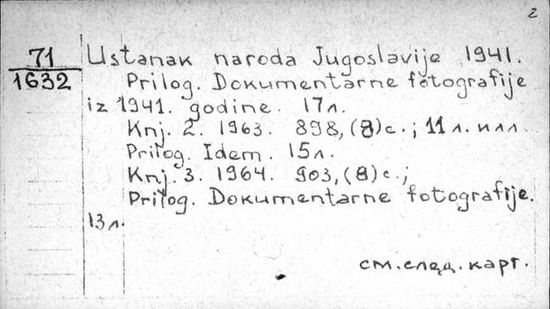 2
71
1632
Ustanak naroda Jugoslavije 1941.
Prilog. Dokumentarne fotografije
iz 1941. godine. 17л.
Knj. 2. 1963. 898, (8)с.; 11 л. илл.
Prilog. Idem. 15л.
Knj. 3. 1964. 903, (8)с.;
Prilog. Dokumentarne fotografije.
13л.
см. след. карт.